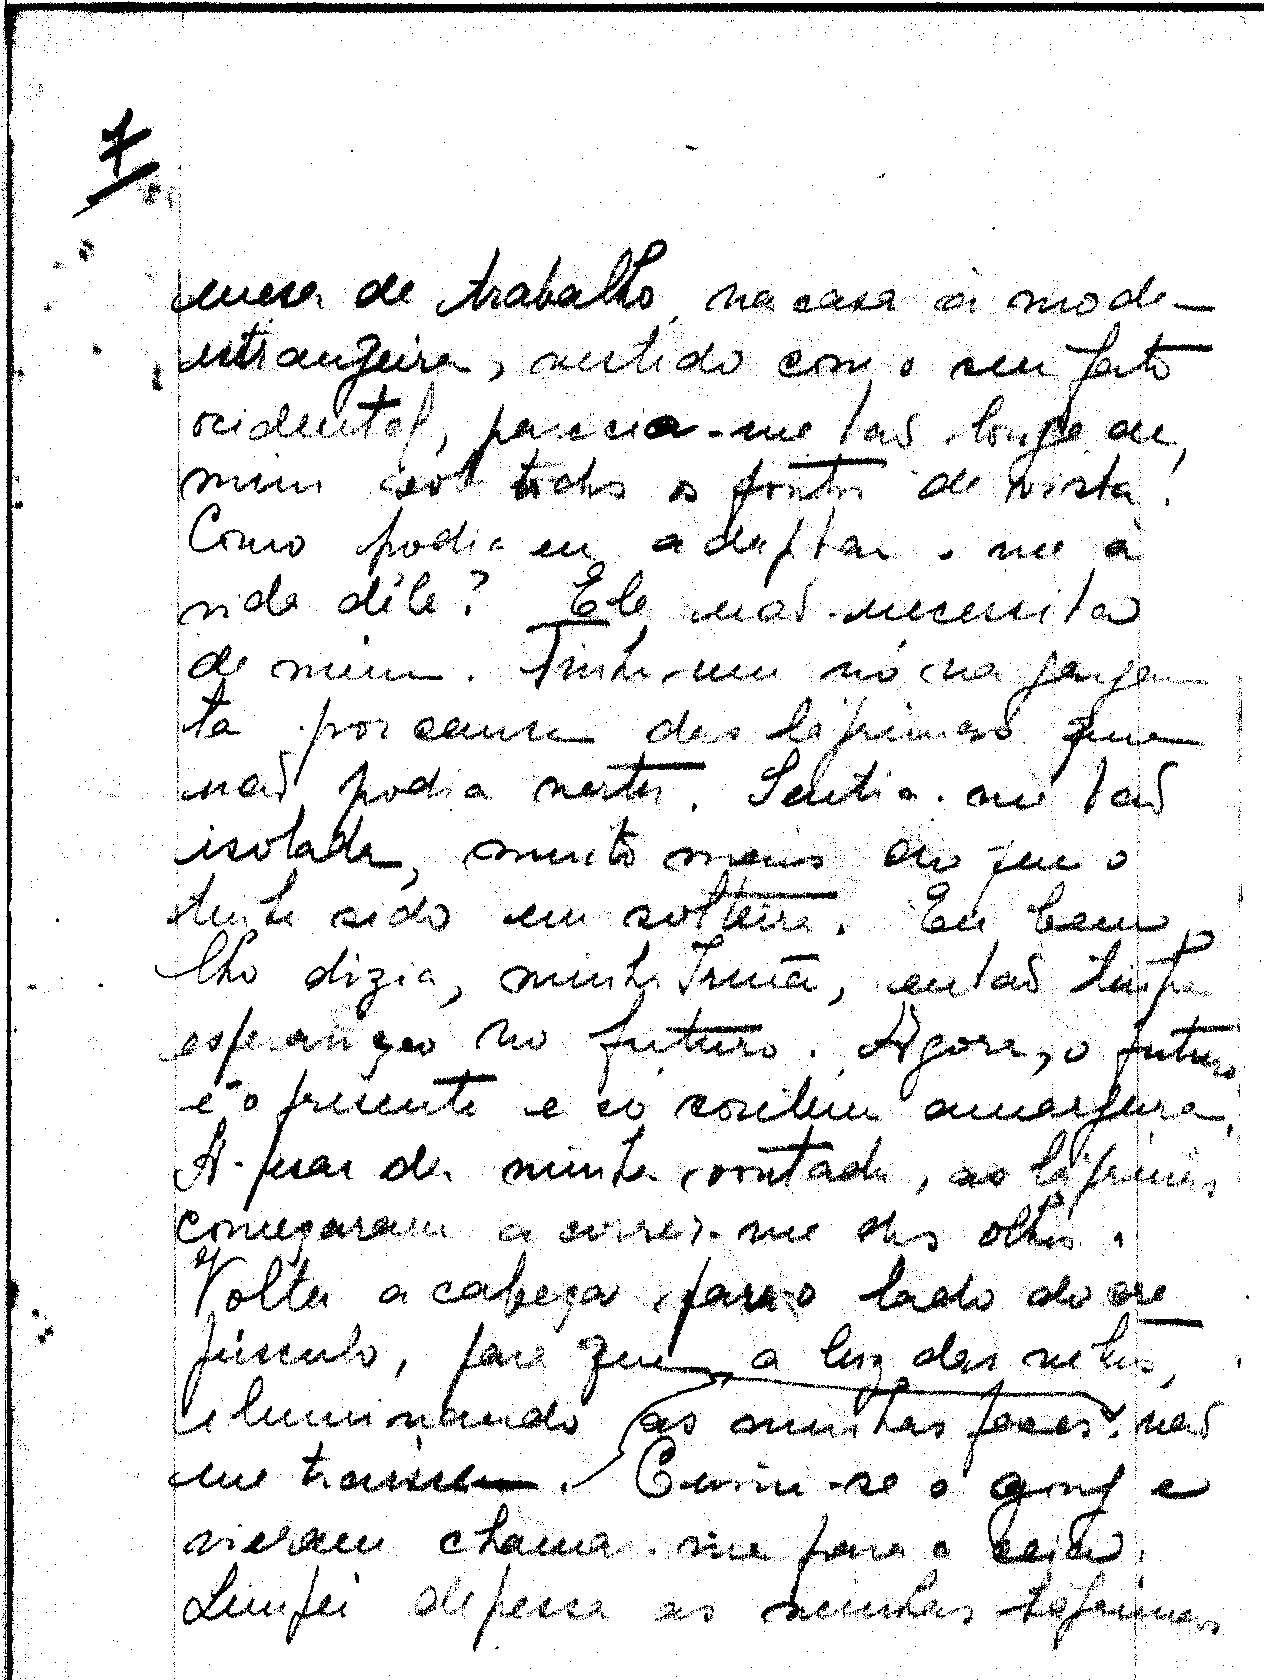 7
mesa de trabalho, na casa á moda
estrangeira, vestido com o seu fato
ocidental, parecia-me tão longe de
mim sob todos os pontos de vista.
Como podia eu adaptar-me á
vida dêle? Ele não necessita
de mim. Tinha um nó na gargan
ta por causa das lágrimas que
não podia verter. Sentia-me tão
isolada, muito mais do que o
tinha sido em solteira. Eu bem
lho dizia, minha Irmã, então tinha
esperanças no futuro. Agora, o futuro
é o presente e só contem amargura.
A-pesar da minha vontade, as lágrimas
começaram a correr-me dos olhos.
Voltei a cabeça para o lado do cre
púsculo, para que, a luz das velas,
iluminando as minhas faces, não
me traisse. Ouviu-se o gong e
vieram chamar-me para a ceia.
Limpei depressa as minhas lágrimas